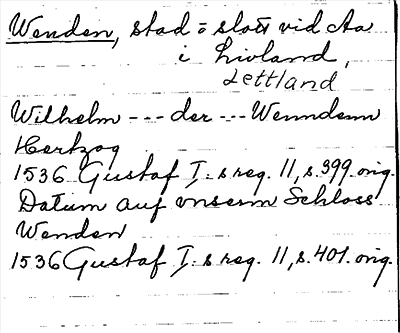 Wenden, stad o slott vid Aa
i Livland,
Lettland
Wilhelm --- der --- Wenndenn
Hertzog
1536 Gustaf I:s reg. 11, s. 399 orig.
Datum auf vnserm Schloss
Wenden
1536 Gustaf I:s reg. 11, s. 401. orig.